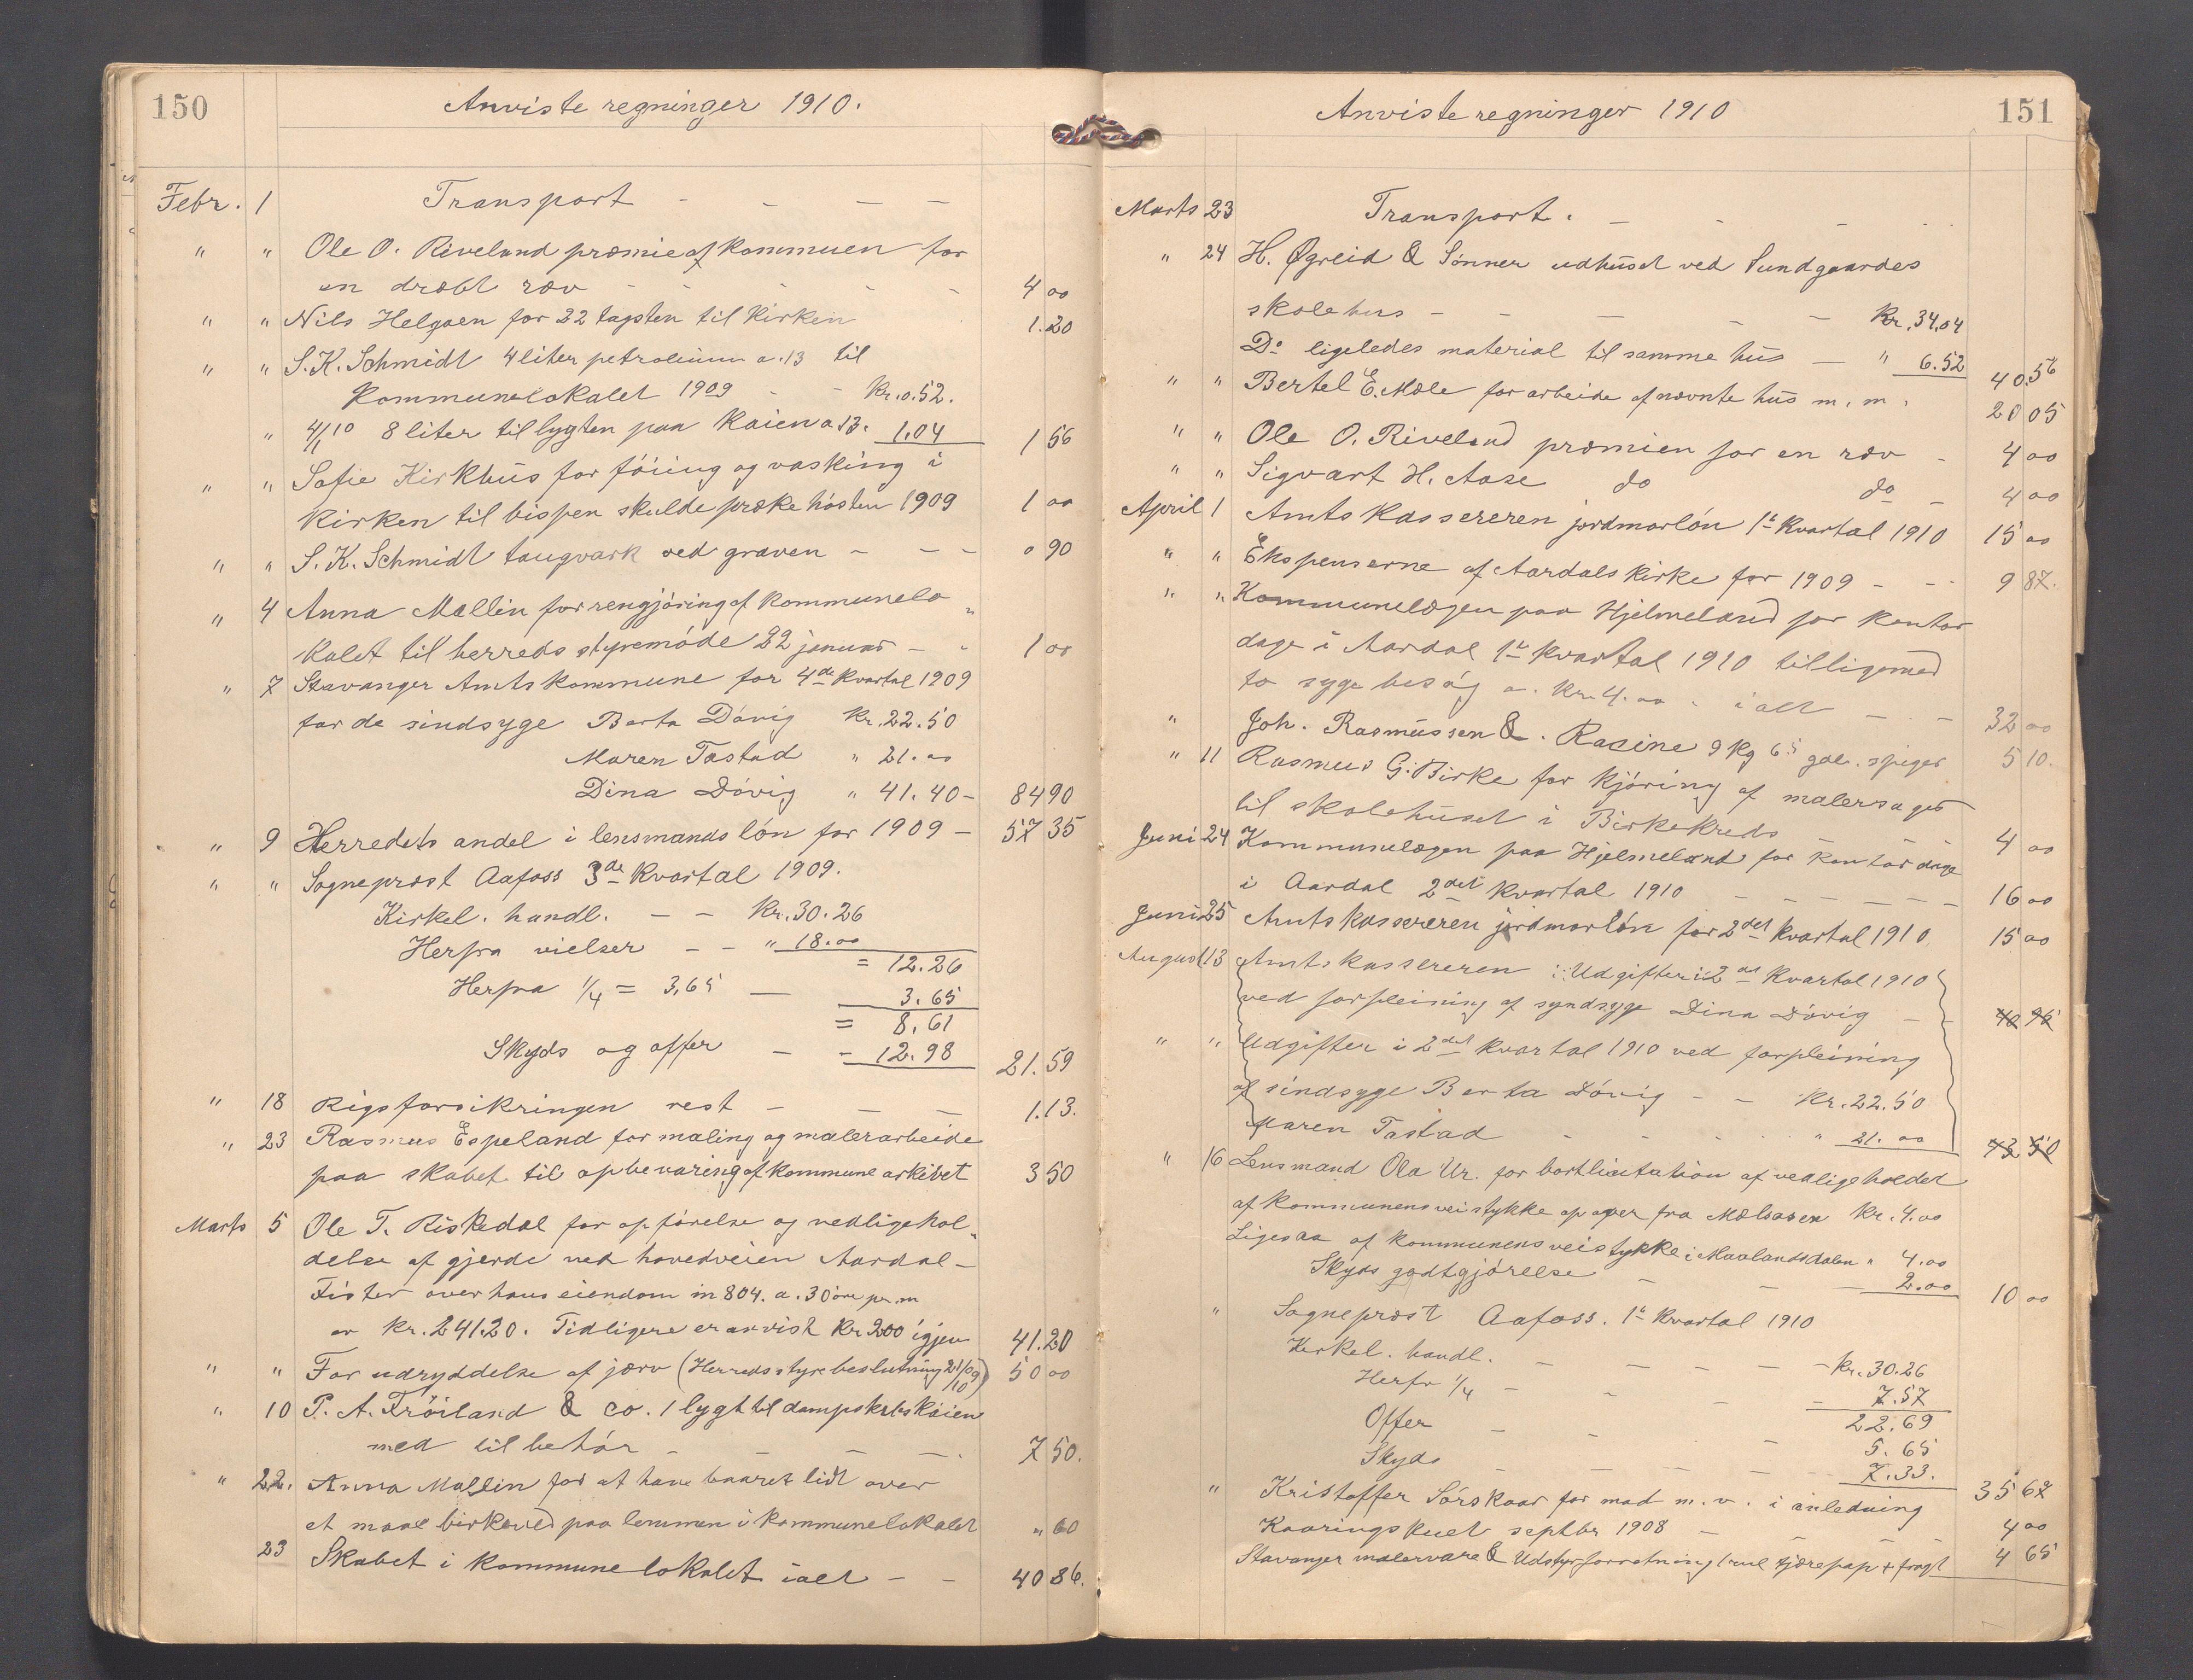 150
Anviste regninger 1910.
Febr. 1 Transport - - - -
" " Ole O. Riveland præmie af kommuen for
en dræbt ræv - - - - - 4 00
" " Nils Helgøen for 22 tagsten til kirken 1.20
" " S. K. Schmidt 4 liter petroleium a. 13 til
Kommunelokalet 1909 - - Kr. 0.52.
" 4/1 10 8 liter til lygten paa Kaien a 13. 1.04 1 56
" " Sofie Kirkhus for föiing og vasking i
Kirken til bispen skulde præke hösten 1909 1 00
" " S. K. Schmidt taugværk ved graven - - - 0 90
" 4 Anna Mællin for rengjöring af kommunelo
kalet til herredsstyremöde 22 januar - - 1 00
" 7 Stavanger Amtskommune for 4de Kvartal 1909
for de sindsyge Berta Dövig Kr. 22.50
Maren Tastad " 21.00
Dina Dövig " 41.40 - 84 90
" 9 Herredets andel i lensmandslön for 1909 - 57 35
" " Sogneprest Aafoss 3de Kvartal 1909.
Kirkel. handl. - - Kr. 30.26
Herfra vielser - - " 18.00
= 12.26
Herfra 1/4 = 3,65 - 3.65
= 8.61
Skyds og offer - - 12.98 21.59
" 18 Rigsforsikringen rest - - - 1.13.
" 23 Rasmus Espeland for maling og malerarbeide
paa skabet til opbevaring af kommune arkivet 3 50
Marts 5 Ole T. Riskedal for opförelse og vedligehol
delse af gjerde ved hovedveien Aardal -
Fister over hans eiendom m 804. a. 30 öre pr. m
er Kr. 241.20. Tidligere er anvist Kr 200 igjen 41.20
" " For udryddelse af jærv (Herredsstyrebeslutning 21/10 09) 50 00
" 10 P. A. Fröiland & Co. 1 lygt til dampskibskaien
med tilbehör - - - - 7 50.
" 22. Anna Mællin for at have baaret lidt over
et maal birkeved paa lemmen i kommunelokalet " 60
23 Skabet i kommunelokalet ialt - - 40 86.
151
Anviste regninger 1910
Marts 23 Transport. - - - -
" 24 H. Øgreid & Sönner udhuset ved Sundgaardes
skolehus - - - - - Kr. 34,04
Do ligeledes material til samme hus - " 6.52 40.56
" " Bertel E. Mæle for arbeide af nævnte hus m. m. 20 05
" " Ole O. Riveland præmien for en ræv - 4 00
" " Sigvart H. Aase do do - 4 00
April 1 Amtskassereren jordmorlön 1te Kvartal 1910 15 00
" " Ekspenserne af Aardals kirke for 1909 - - 9 87.
" " Kommunelægen paa Hjelmeland for kontor
dage i Aardal 1te kvartal 1910 tilligemed
to sygebesög a. Kr. 4.00 ialt - - 32 00
" Joh. Rasmussen & Racine 9 Kg 6" gal. spiger 5 10.
" 11 Rasmus G. Birke for kjöring af malersager
til skolehuset i Birkekreds - - 4 00
Juni 24 Kommunelægen paa Hjelmeland for kontordage
i Aardal 2det kvartal 1910 - - - - - - 16 00
Juni 25 Amtskassereren jordmorlön for 2det kvartal 1910 15 00
August 13 Amtskassereren : Udgifter i 2det Kvartal 1910
ved forpleining af syndsyge Dina Dövig - - 40 96
" " Udgifter i 2det kvartal 1910 ved forpleining
af sindsyge Berta Dövig - - Kr. 22.50
Maren Tastad - - - - " 21.00 43 50
" 16 Lensmand Ola Ur. for bortlicitation af vedligeholdet
af Kommunens veistykke opover fra Mælsosen Kr. 4.00
Ligesaa af kommunens veistykke i Maalandsdalen " 4.00
Skyds godtgjörelse - - - 2.00 10 00
" Sogneprest Aafoss. 1te Kvartal 1910
Kirkel. handl. - - - - - Kr. 30.26
Herfr 1/4 - - - - 7.57
22.69
Offer - - - 5.65
Skyds - - - - - 7.33. 35 67
" Kristoffer Sörskaar for mad m. v. i anledning
Kaaringskuet septbr 1908 - - - - 4 00
Stavanger malervare & Udstyrsforretning 1 rul tjærepap + fragt 4 65